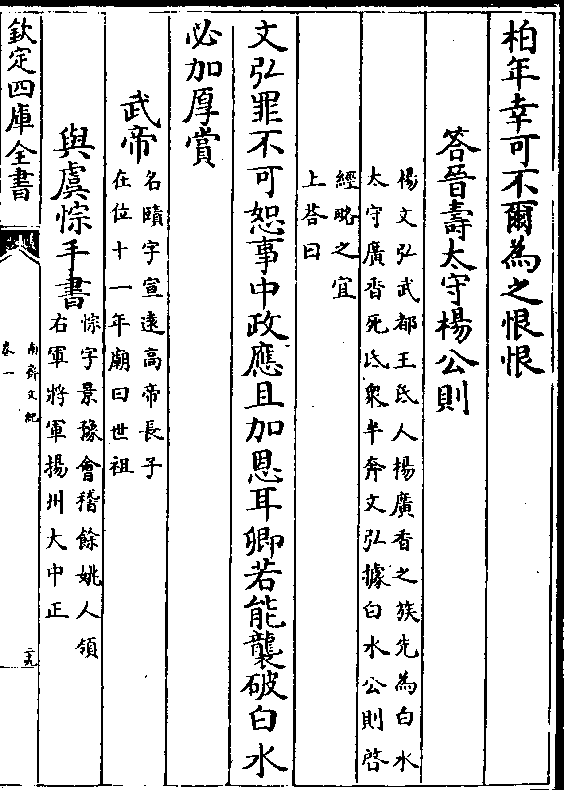 柏年幸可不爾為之恨恨
答晉壽太守楊公則
楊文弘武都王氐人楊廣香之族先為白水
太守廣香死氐衆半奔文弘據白水公則啓
經略之宜
上答曰
文弘罪不可恕事中政應且加恩耳卿若能襲破白水
必加厚賞
武帝
名賾字宣遠高帝長子
在位十一年廟曰世祖
與虞悰手書
悰字景豫會稽餘姚人領
右軍將軍揚州大中正
欽定四庫全書
南齊文紀
卷一